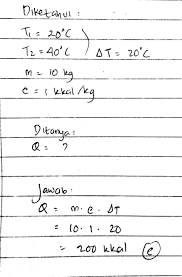 Diketahui :
T₁ = 20°C
T₂ = 40°C ) ΔT = 20°C
m = 10 kg
c = 1 kkal/kg
Ditanya :
Q = ?
Jawab :
Q = m . c . ΔT
= 10 . 1 . 20
= 200 kkal (C)